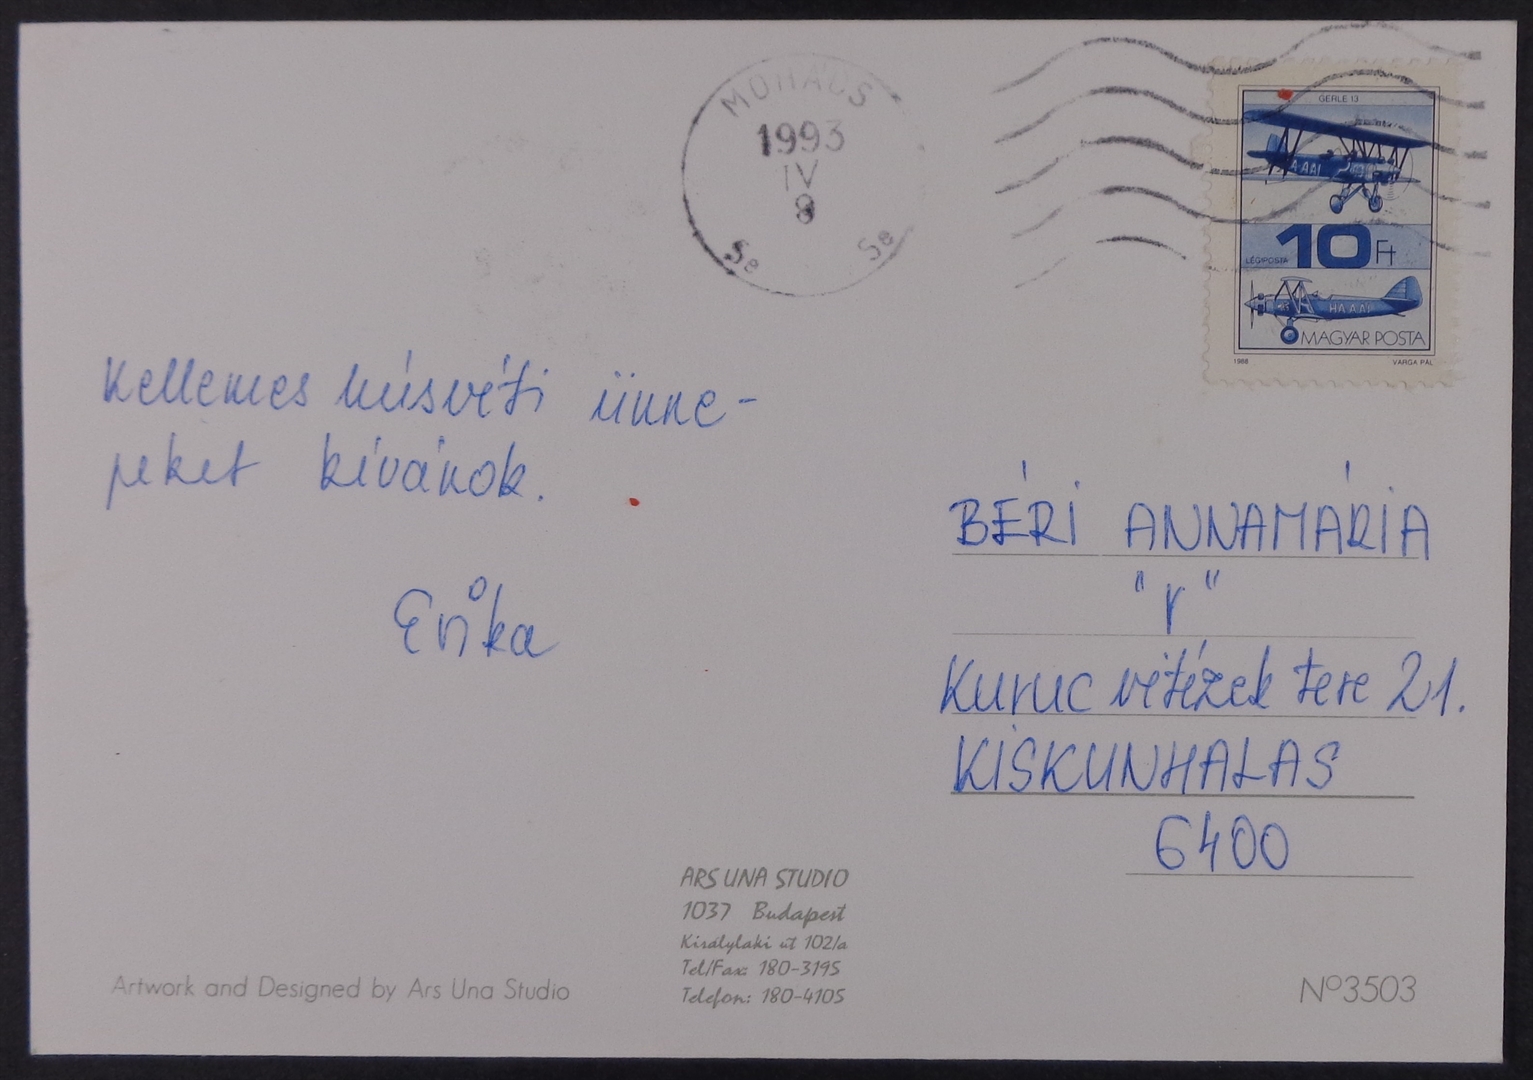 MOHÁCS
1993
IV
8
Se Se
GERLE 13
HA-AAI
10 Ft
LÉGIPOSTA
HA-AAI
MAGYAR POSTA
1988 VARGA PÁL
Kellemes húsvéti ünne-
peket kívánok.
Erika
BÉRI ANNAMÁRIA
"r"
Kuruc vitézek tere 21.
KISKUNHALAS
6400
ARS UNA STUDIO
1037 Budapest
Királylaki út 102/a
Tel/Fax: 180-3195
Telefon: 180-4105
Artwork and Designed by Ars Una Studio
Nº3503